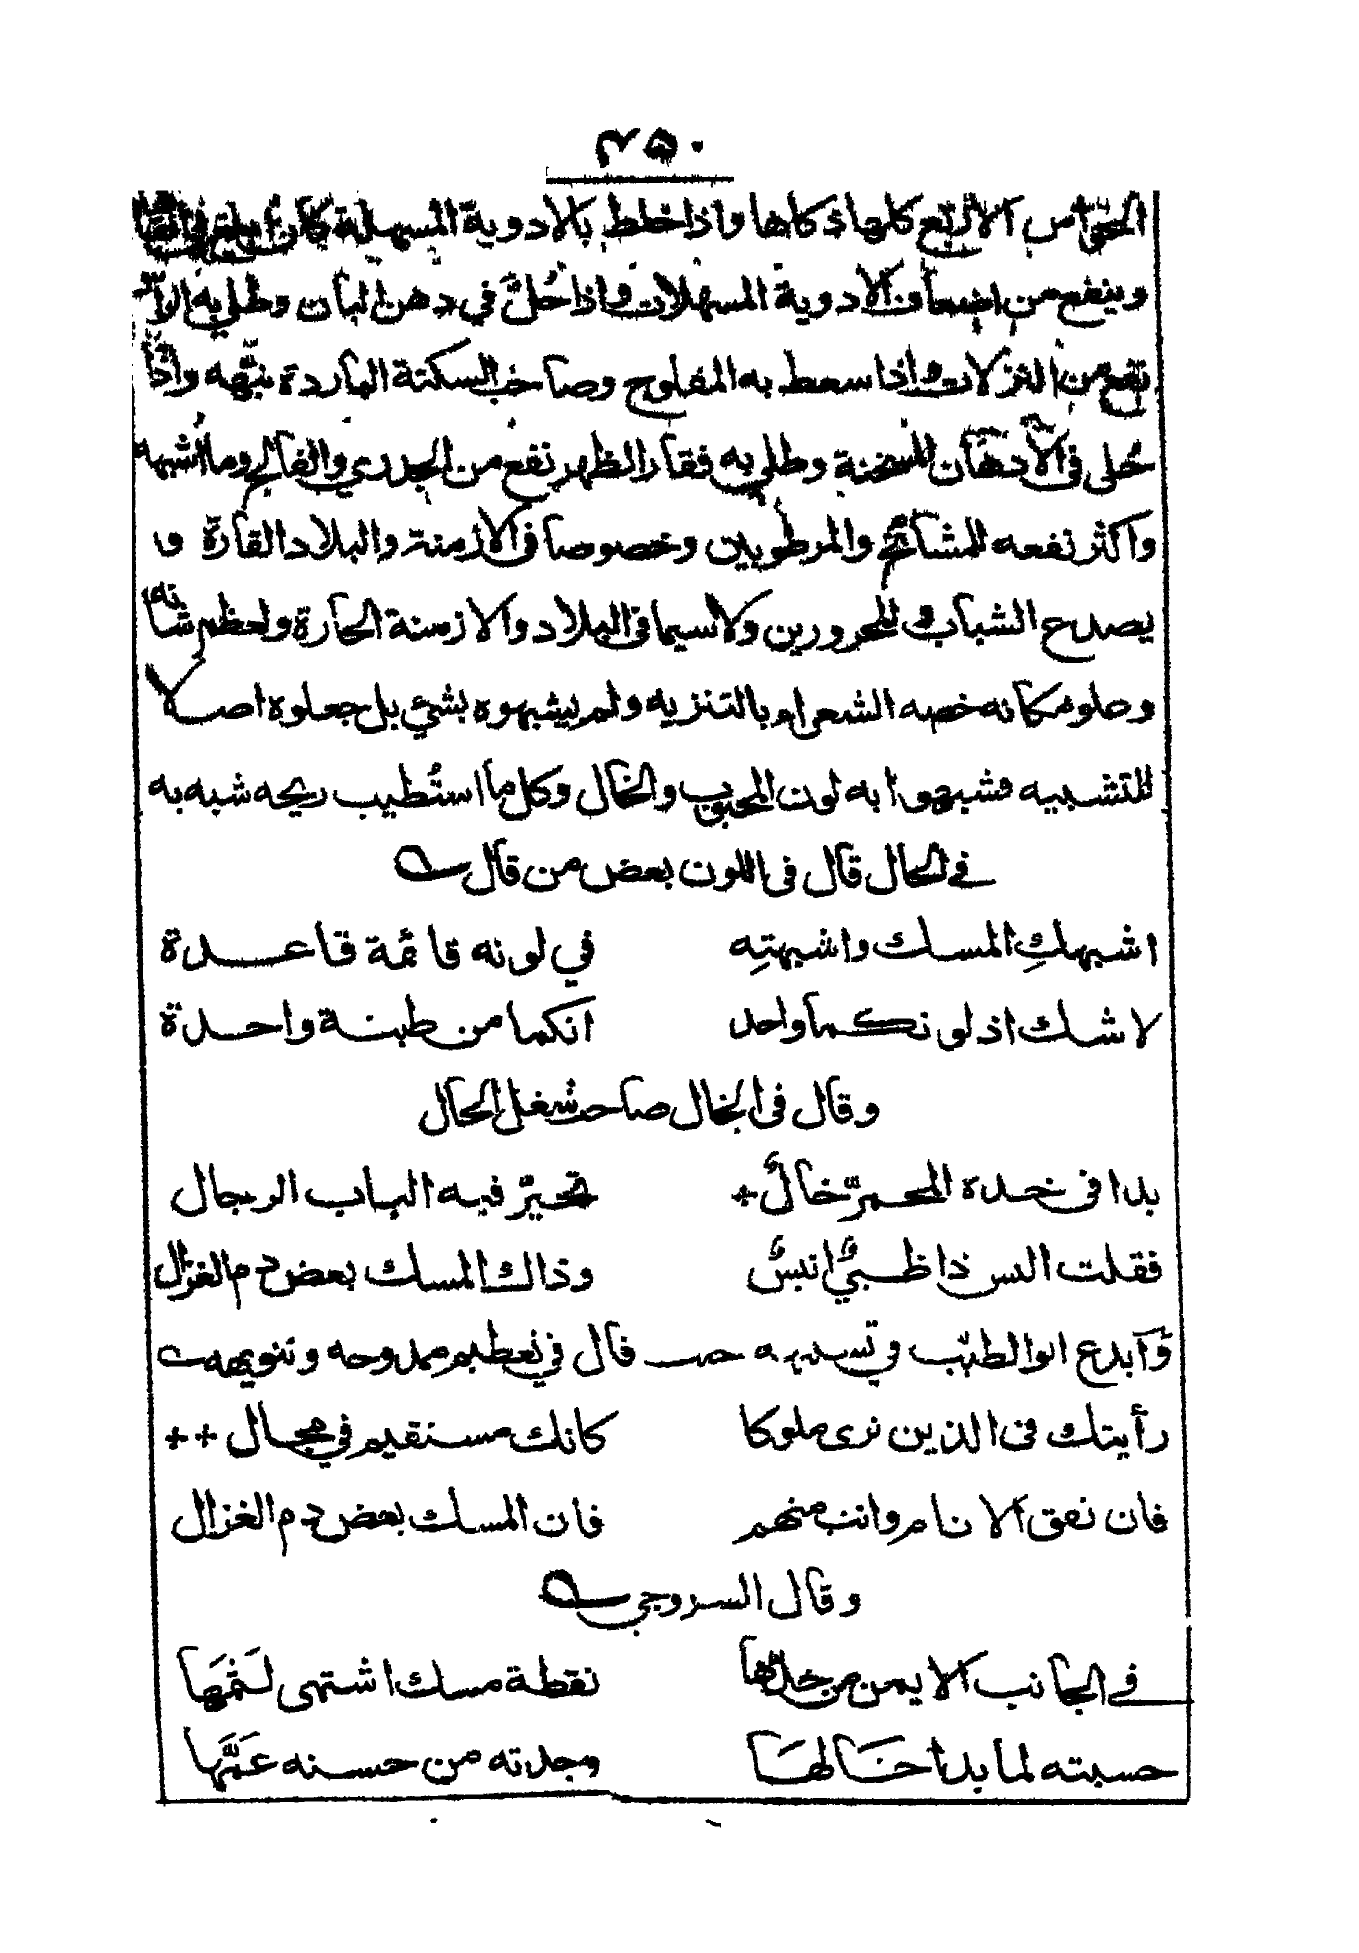 ٢٥٠
الحواس الأربع كلها ذكاها واذا خلط بالادوية المسهلة كان
وينفع من اضعاف الادوية المسهلات واذا حُلَّ في دهن البان وطلي به الرأس
نفع من النزلات واذا سعط به المفلوج وصاحب السكتة الباردة نبّهه واذا
حُلى فى الأدهان المسخنة وطلى به فقار الظهر نفع من الجدرى والفالج وما أشبهه
واكثر نفعه للمشائخ والمرطوبين وخصوصا فى الازمنة والبلاد القارّة و
يصدح الشباب والمحرورين ولا سيما فى البلاد والازمنة الحارة ولعظم شانه
وعلو مكانه خصه الشعراء بالتنزيه ولم يشبهوه بشئ بل جعلوه اصلا
للتشبيه فشبهوا به لون المحبوب والخال وكل ما استُطيب ريحه شبه به
في الحال قال فى اللون بعض من قال
اشبهكِ المسك واشبهتِه في لونه قائمة قاعدة
لا شك اذ لونكما واحد انكما من طينة واحدة
وقال فى الخال صاحب شغل الحال
بدا فى خده المحمرّ خالٌ تحيّر فيه الباب الرجال
فقلت اليس ذا ظبيٌ انيسٌ وذاك المسك بعض دم الغزال
وَأبدع ابو الطيّب في تشبيهه حيث قال في تعظيم ممدوحه وتنويهه
رأيتك فى الذين نرى ملوكا كانك مستقيم في مجال
فان تفق الانام وانت منهم فان المسك بعض دم الغزال
وقال السروجي
في الجانب الايمن من خدّها نقطة مسك اشتهى لَثمَها
حسبته لما بدا خَالهَا وجدته من حسنه عَمَّهَا